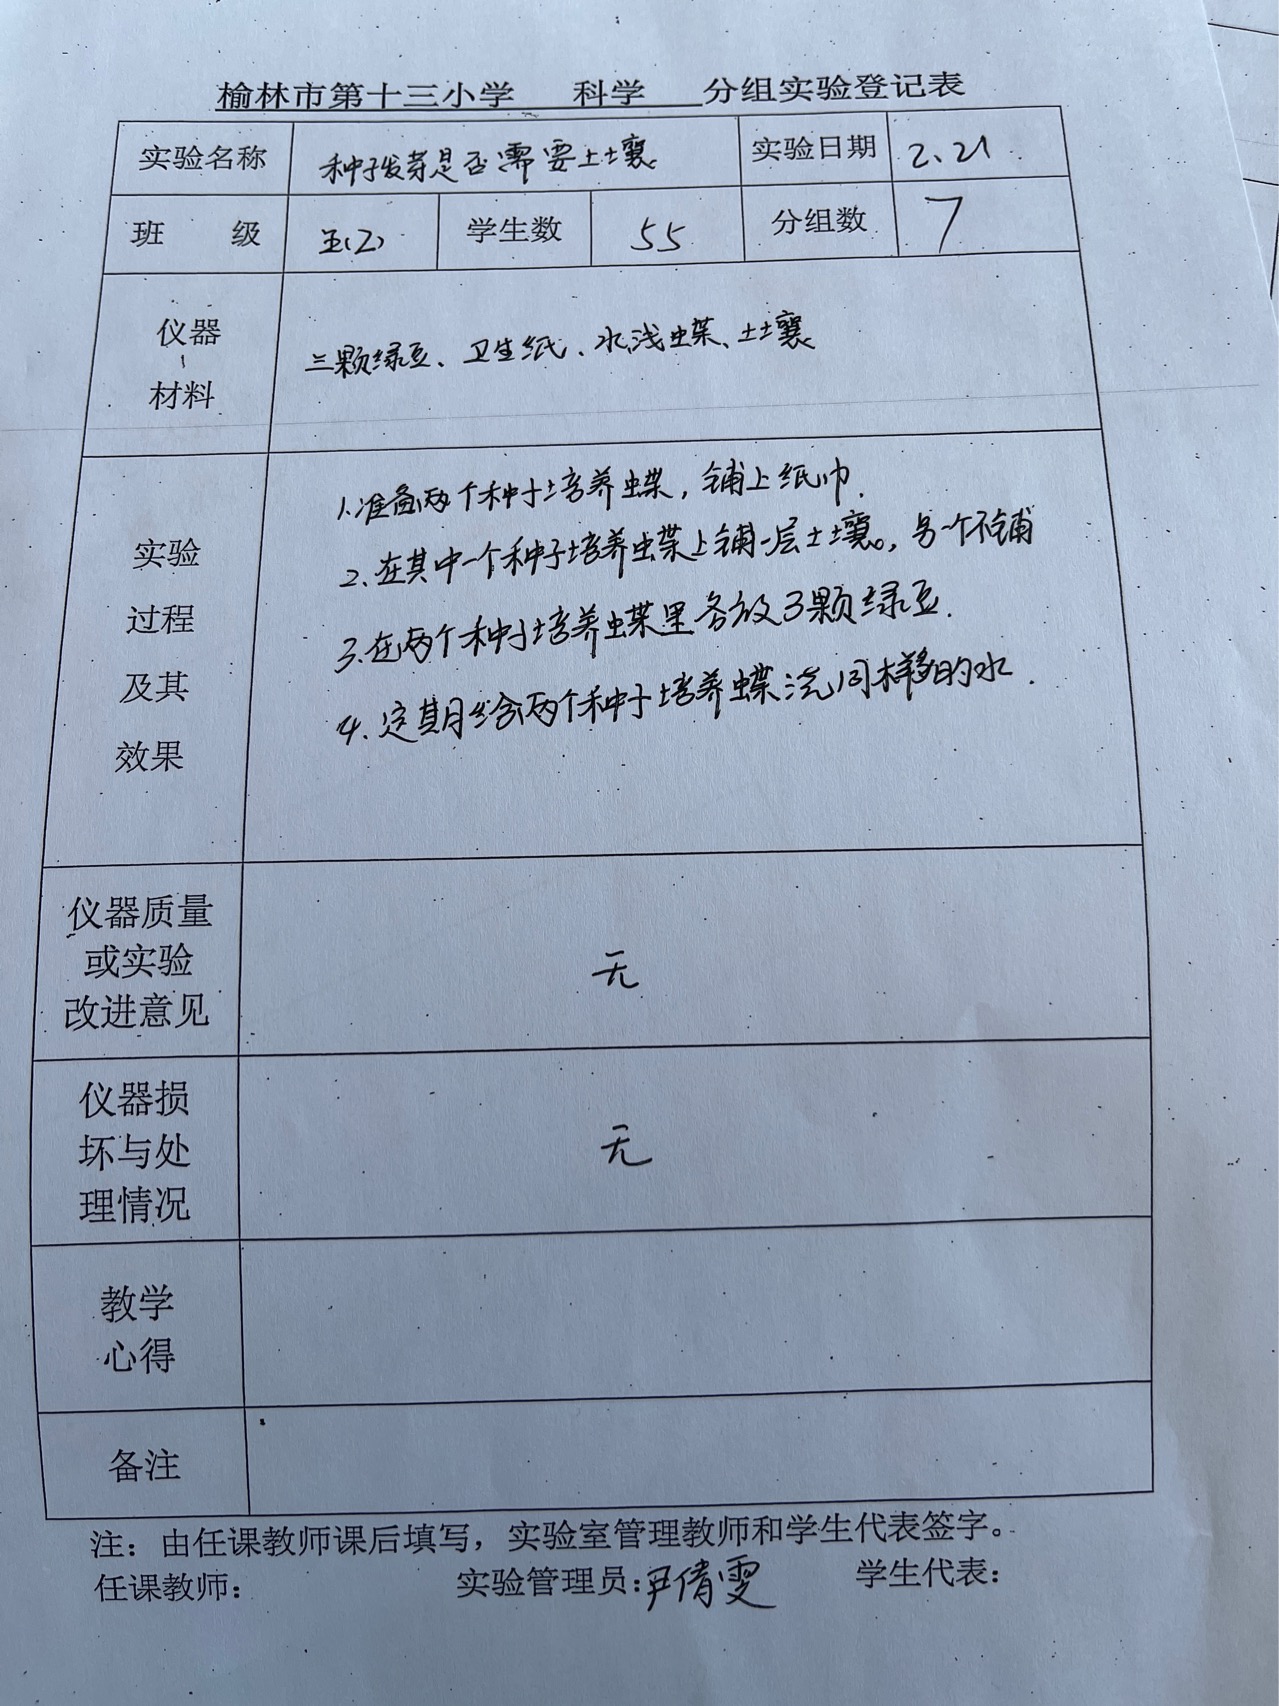 榆林市第十三小学 科学 分组实验登记表
实验名称 种子发芽是否需要土壤 实验日期 2.21
班 级 五(2) 学生数 55 分组数 7
仪器
材料
三颗绿豆、卫生纸、水浅蝶、土壤
实验
过程
及其
效果
1.准备两个种子培养蝶，铺上纸巾.
2.在其中一个种子培养蝶上铺一层土壤。，另一个不铺
3.在两个种子培养蝶里各放3颗绿豆.
4.定期给两个种子培养蝶浇同样多的水.
仪器质量
或实验
改进意见
无
仪器损
坏与处
理情况
无
教学
心得
备注
注：由任课教师课后填写，实验室管理教师和学生代表签字。
任课教师： 实验管理员：尹倩雯 学生代表：